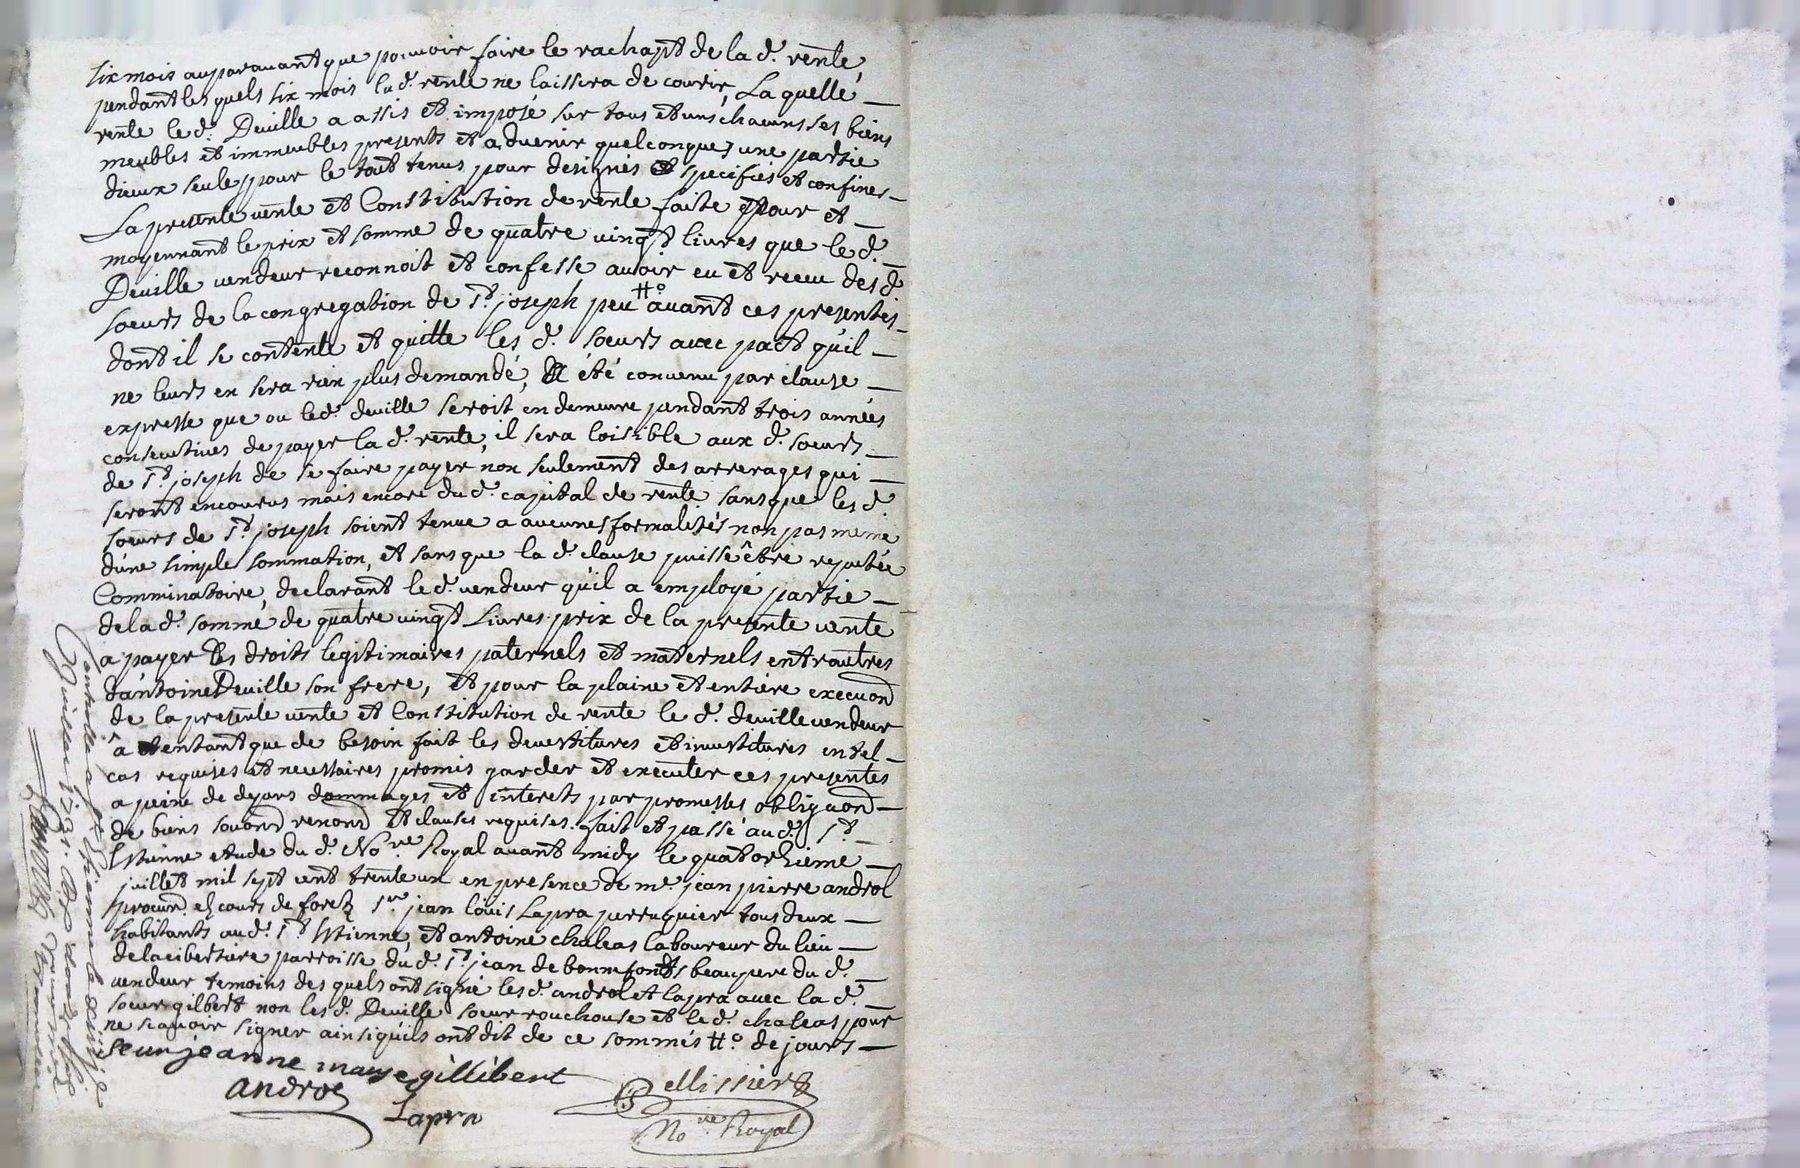 six mois auparavant que pouvoir faire le rachapt de la d. rente,
pendant lesquels six mois la d. rente ne laissera de courir, La quelle
rente le d. Deville a assis et imposé sur tous et uns chacuns ses biens
meubles et immeubles presents et advenir quelconques une partie
d'ieux seule pour le tout tenus pour designés et specifiés et confinés
La presente vente et Constitution de rente faite pour et
moyennant le prix et somme de quatre vingt livres que le d.
Deville vendeur reconnoit et confesse avoir eu et receu des d.
soeurs de la congregation de St. joseph peu avant ces presentes
dont il se contente et quitte les d. soeurs avec pact qu'il
ne leurs en sera rien plus demandé, A été convenu par clause
expresse que ou le d. deville seroit en demeure pendant trois années
consecutives de payer la d. rente, il sera loisible aux d. soeurs
de St. joseph de se faire payer non seulement des arrerages qui
seront encourus mais encore du d. capital de rente sans que les d.
soeurs de St. joseph soient tenue a aucunes formalités non pas meme
d'une simple sommation, et sans que la d. clause puisse être reputée
Comminatoire, declarant le d. vendeur qu'il a employé partie
de la d. somme de quatre vingt Livres prix de la presente vente
a payer les droits legitimaires paternels et maternels entr'autres
d'antoine Deville son frere, et pour la plaine et entiere execuon
de la presente vente et Constitution de rente le d. deville vendeur
â entant que de besoin fait les devestitures et investitures en tel
cas requises et necessaires promis garder et executer ces presentes
a peine de depens dommages et interets par promesses obligaon
de biens soumon renon et clauses requises. fait et passé au d. St.
Estienne etude du d. Nore. Royal avant midy le quatorzieme
juillet mil sept cent trente un en presence de me. jean pierre androl
procur. ez cours de forez Sr. jean louis Lapra perruquier tous deux
habitants au d. St. Estienne, et antoine chaleas laboureur du lieu
de la ribertiere parroisse du d. St. jean de bonnefonds beaupere du d.
vendeur temoins des quels ont signé les d. androl et lapra avec la d.
soeur gilbert non les d. Deville soeur rouchouse et le d. chaleas pour
ne scavoir signer ainsi qu'ils ont dit de ce sommés de jours
seur jeanne marye gillibert
androl
Lapra
Pellissier
Nore. Royal
Controllé a St. Estienne le
juillet 1731. Recu